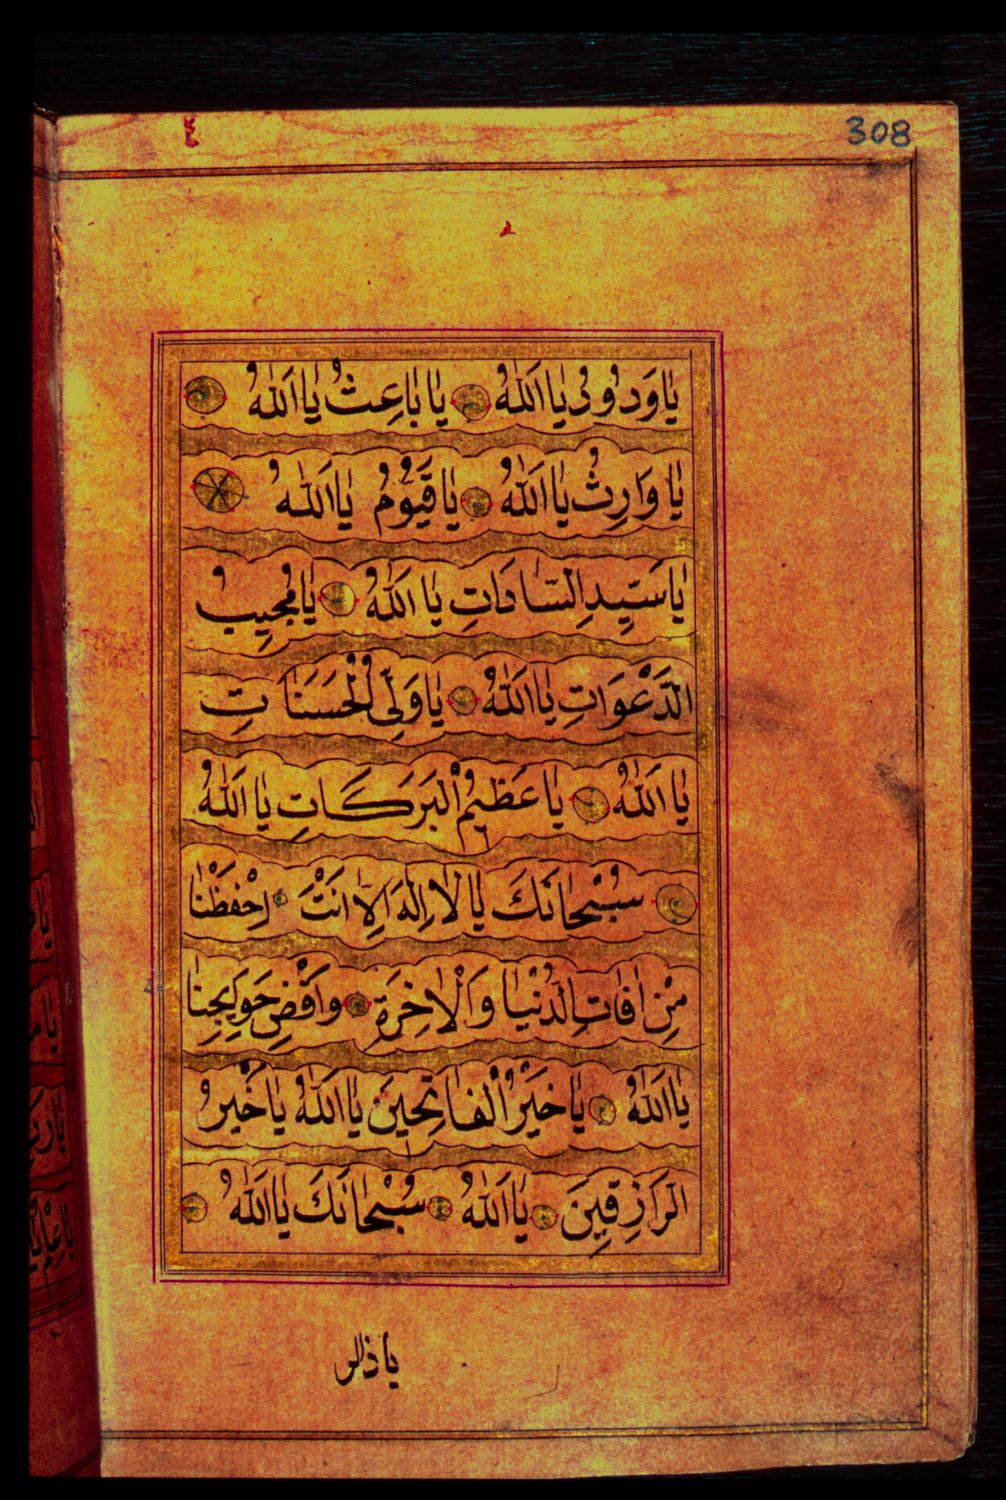 308
يَا وَدُودُ يَا اَللّٰهُ يَا بَاعِثُ يَا اَللّٰهُ
يَا وَارِثُ يَا اَللّٰهُ يَا قَيُّومُ يَا اَللّٰهُ
يَا سَيِّدَ السَّادَاتِ يَا اَللّٰهُ يَا مُجِيبُ
الدَّعْوَاتِ يَا اَللّٰهُ يَا وَلِيَّ الْحَسَنَاتِ
يَا اَللّٰهُ يَا عَظِيمُ الْبَرَكَاتِ يَا اَللّٰهُ
سُبْحَانَكَ يَا لَا اِلٰهَ اِلَّا اَنْتَ اِحْفَظْنَا
مِنْ اٰفَاتِ الدُّنْيَا وَالْاٰخِرَةِ وَاقْضِ حَوَايِجَنَا
يَا اَللّٰهُ يَا خَيْرُ الْفَاتِحِينَ يَا اَللّٰهُ يَا خَيْرُ
الرَّازِقِينَ يَا اَللّٰهُ سُبْحَانَكَ يَا اَللّٰهُ